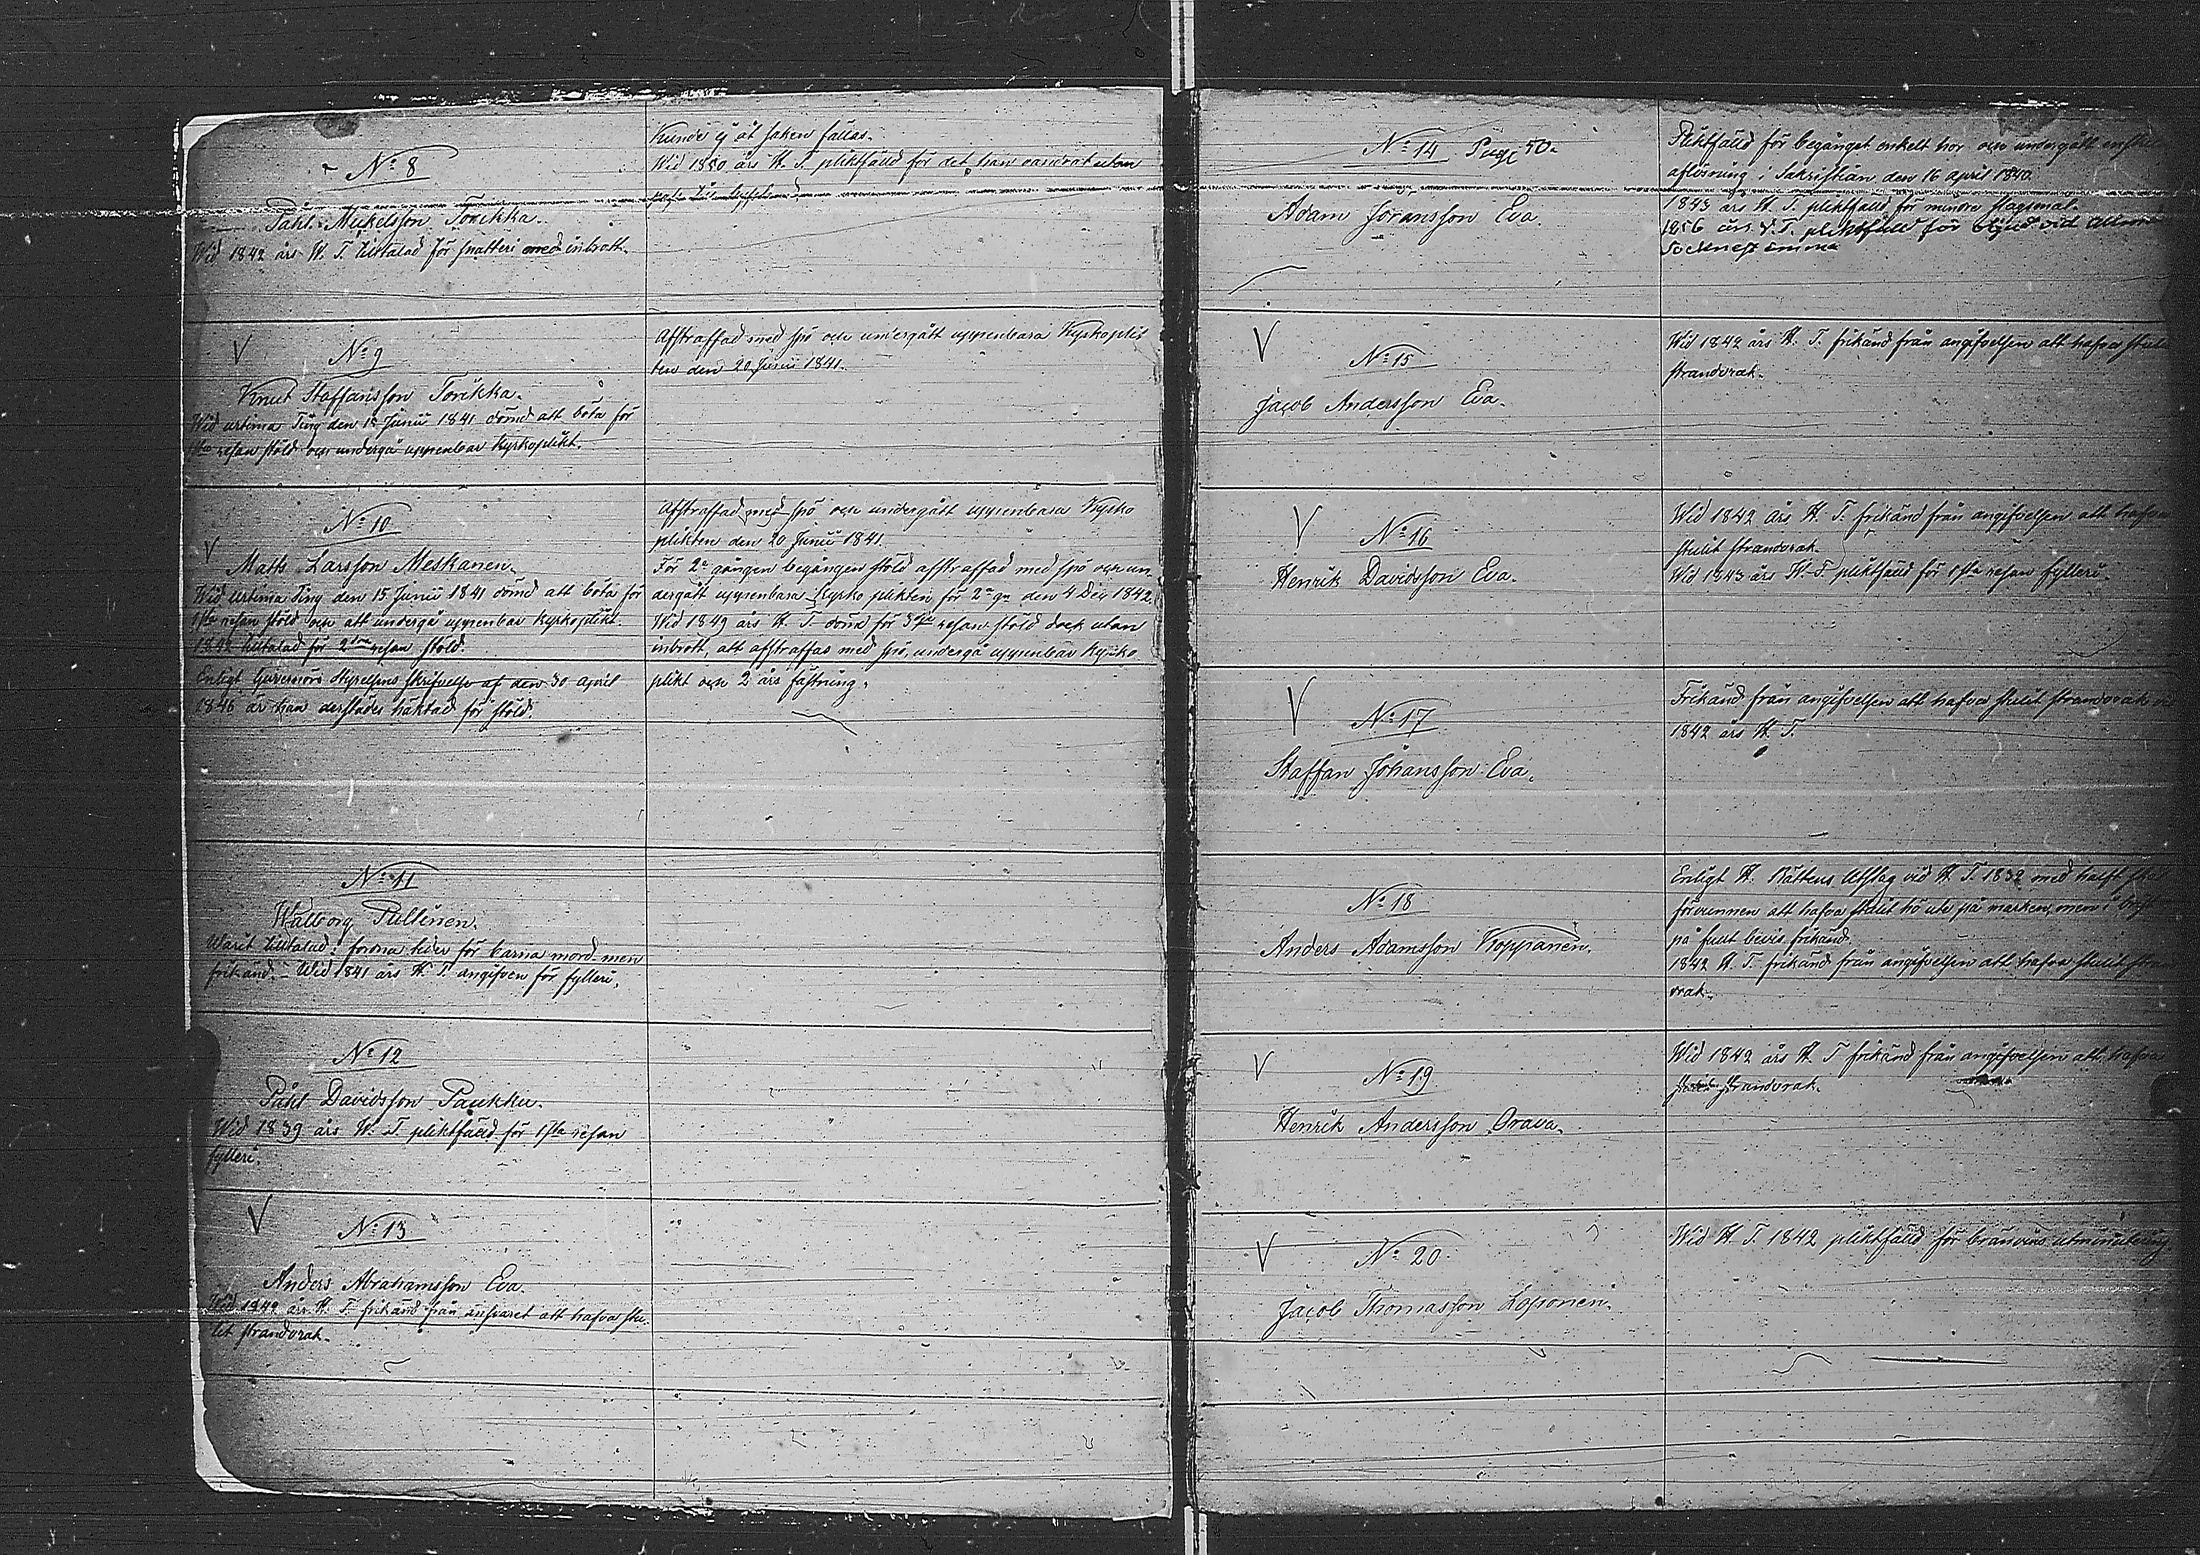 No 8
Påhl Mickelsson Torikka.
Wid 1842 års W. T. tilltalad för snatteri med inbrott.
Kunde ej åt saken fällas.
Wid 1850 års H. T. pliktfälld för det han vandrat utan
No 9
Knut Staffansson Torikka.
Wid urtima Ting den 15 Junii 1841 dömd att böta för
1sta resan stöld och undergå uppenbar Kyrkoplikt.
Afstraffad med spö och undergått uppenbara Kyrkoplik
ten den 20 Junii 1841.
No 10
Matts Larsson Meskanen.
Wid urtima Ting den 15 Junii 1841 dömd att böta för
1sta resan stöld och att undergå uppenbar Kyrkoplikt.
1842 tilltalad för 2dra resan stöld.
Enligt Guvernörs Styrelsens skrifvelse af den 30 April
1846 är han derstädes häktad för stöld.
Afstraffad med spö och undergått uppenbara Kyrko
plikten den 20 Junii 1841.
För 2a gången begången stöld afstraffad med spö och un-
dergått uppenbara Kyrko plikten för 2a gn den 4 Dec 1842.
Wid 1849 års H. T. dömd för 3dje resan stöld dock utan
inbrott, att afstraffas med spö, undergå uppenbar Kyrko
plikt och 2 års fästning.
No 11
Walborg Pullinen.
Warit tilltalad i forna tider för barna mord men
frikänd. - Wid 1841 års H. T. angifven för fylleri.
No 12
Påhl Davidsson Paukku.
Wid 1839 års W. T. pliktfälld för 1sta resan
fylleri.
No 13
Anders Abrahamsson Eva.
Wid 1842 års H. T. frikänd från ansvaret att hafva stu-
lit strandvrak.
No 14 Pag 50.
Adam Göransson Eva.
Pliktfälld för begånget enkelt hor och undergått enskild
aflösning i Sakristian den 16 April 1840.
1843 års H. T. pliktfälld för mindre slagsmål.
1856 års V. T. pliktfälld för oljud vid Allmän
Sockne stämma
No 15
Jacob Andersson Eva.
Wid 1842 års H. T. frikänd från angifvelsen att hafva stulit
strandvrak.
No 16
Henrik Davidsson Eva.
Wid 1842 års H. T. frikänd från angifvelsen att hafva
stulit strandvrak.
Wid 1843 års H. T. pliktfälld för 1sta resan fylleri.
No 17
Staffan Johansson Eva.
Frikänd från angifvelsen att hafva stulit strandvrak vid
1842 års H. T.
No 18
Anders Adamsson Koppanen.
Enligt H. Rättens Utslag vid H. T. 1832 med halft skäl
förvunnen att hafva stulit hö ute på marken, men i brist
på fullt bevis frikänd.
1842 H. T. frikänd från angifvelsen att hafva stulit strand
vrak.
No 19
Henrik Andersson Orava.
Wid 1842 års H. T frikänd från angifvelsen att hafva
stulit strandvrak.
No 20
Jacob Thomasson Loponen.
Wid H. T. 1842 pliktfälld för bränvins utminutering.